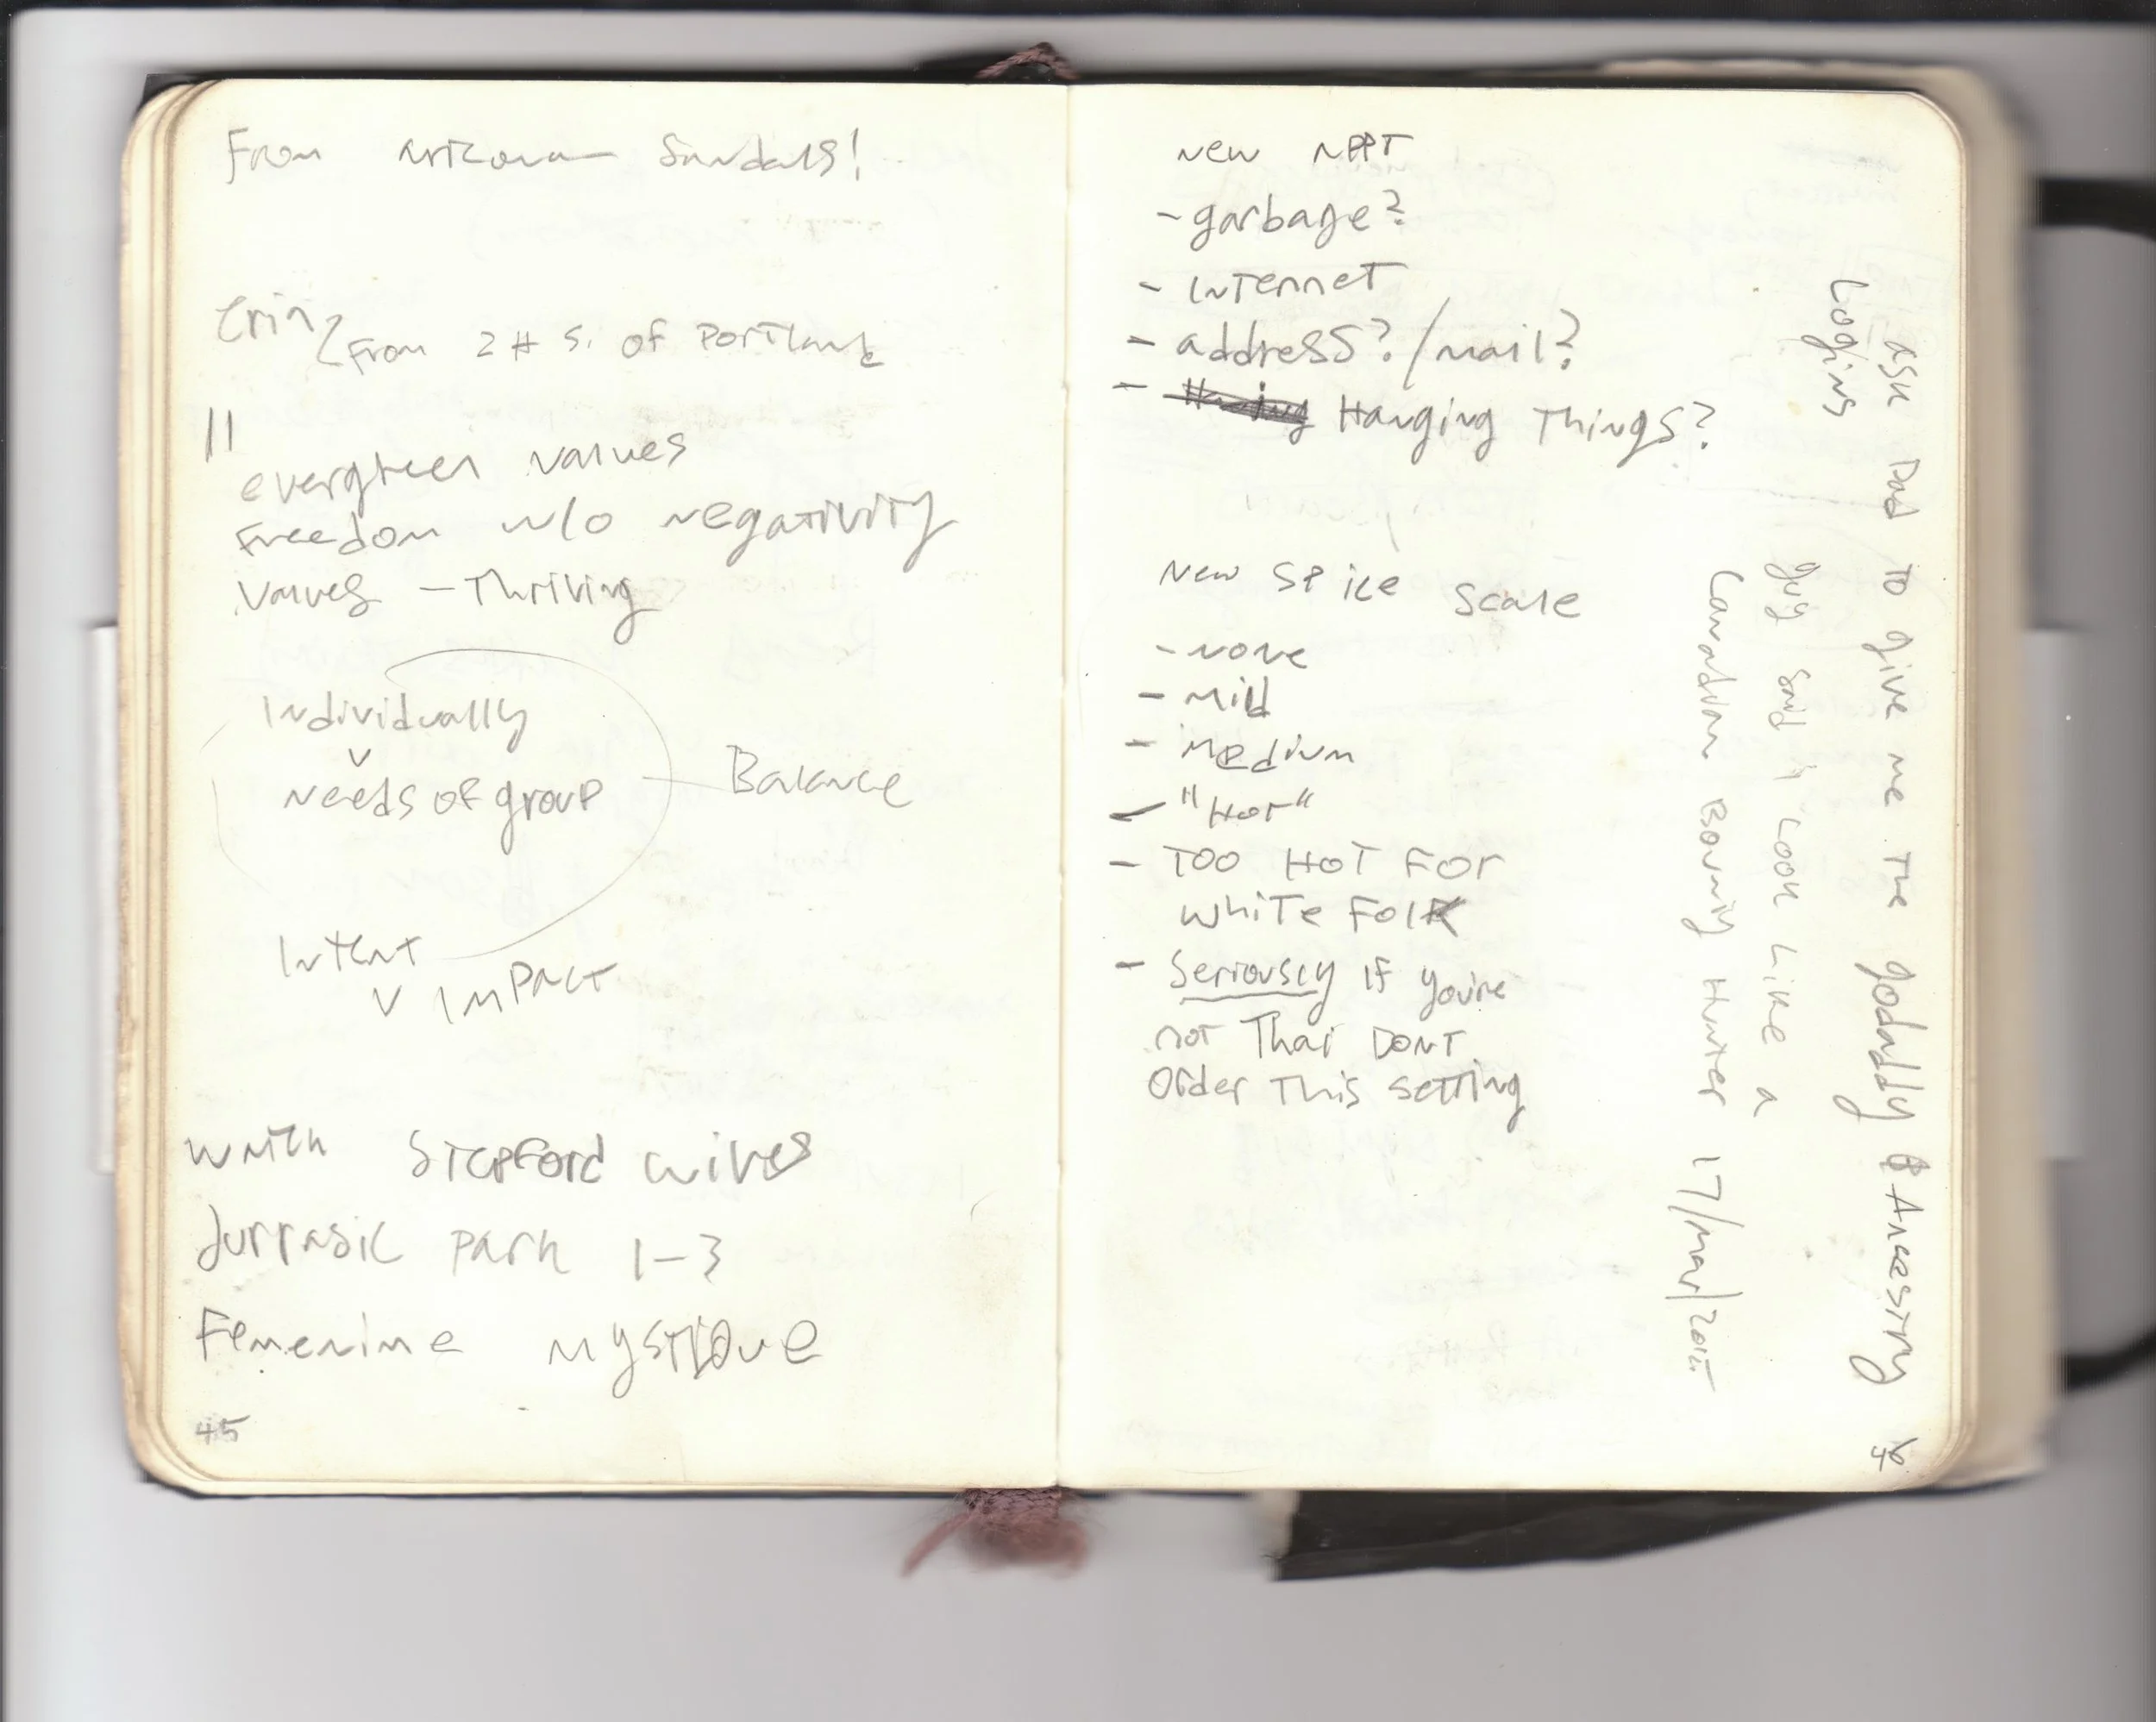 From Arizona Sandals!
Erin
From 2 H S. of Portland
evergreen values
Freedom w/o negativity
values - Thriving
Individually
v
needs of group
Balance
Intent
v Impact
watch Stepford wives
Jurrasic park 1-3
Femenine mystique
45
new APPT
- garbage?
- Internet
- address? / mail?
- Hanging Things?
new spice scale
- none
- Mild
- medium
- "Hot"
- Too Hot For
white Folk
- Seriously if you're
not Thai Dont
Order This setting
ask Dad to give me the godaddy & Ancestry
Logins
guy said I look like a
Canadian Bounty Hunter 17/mar/2015
46